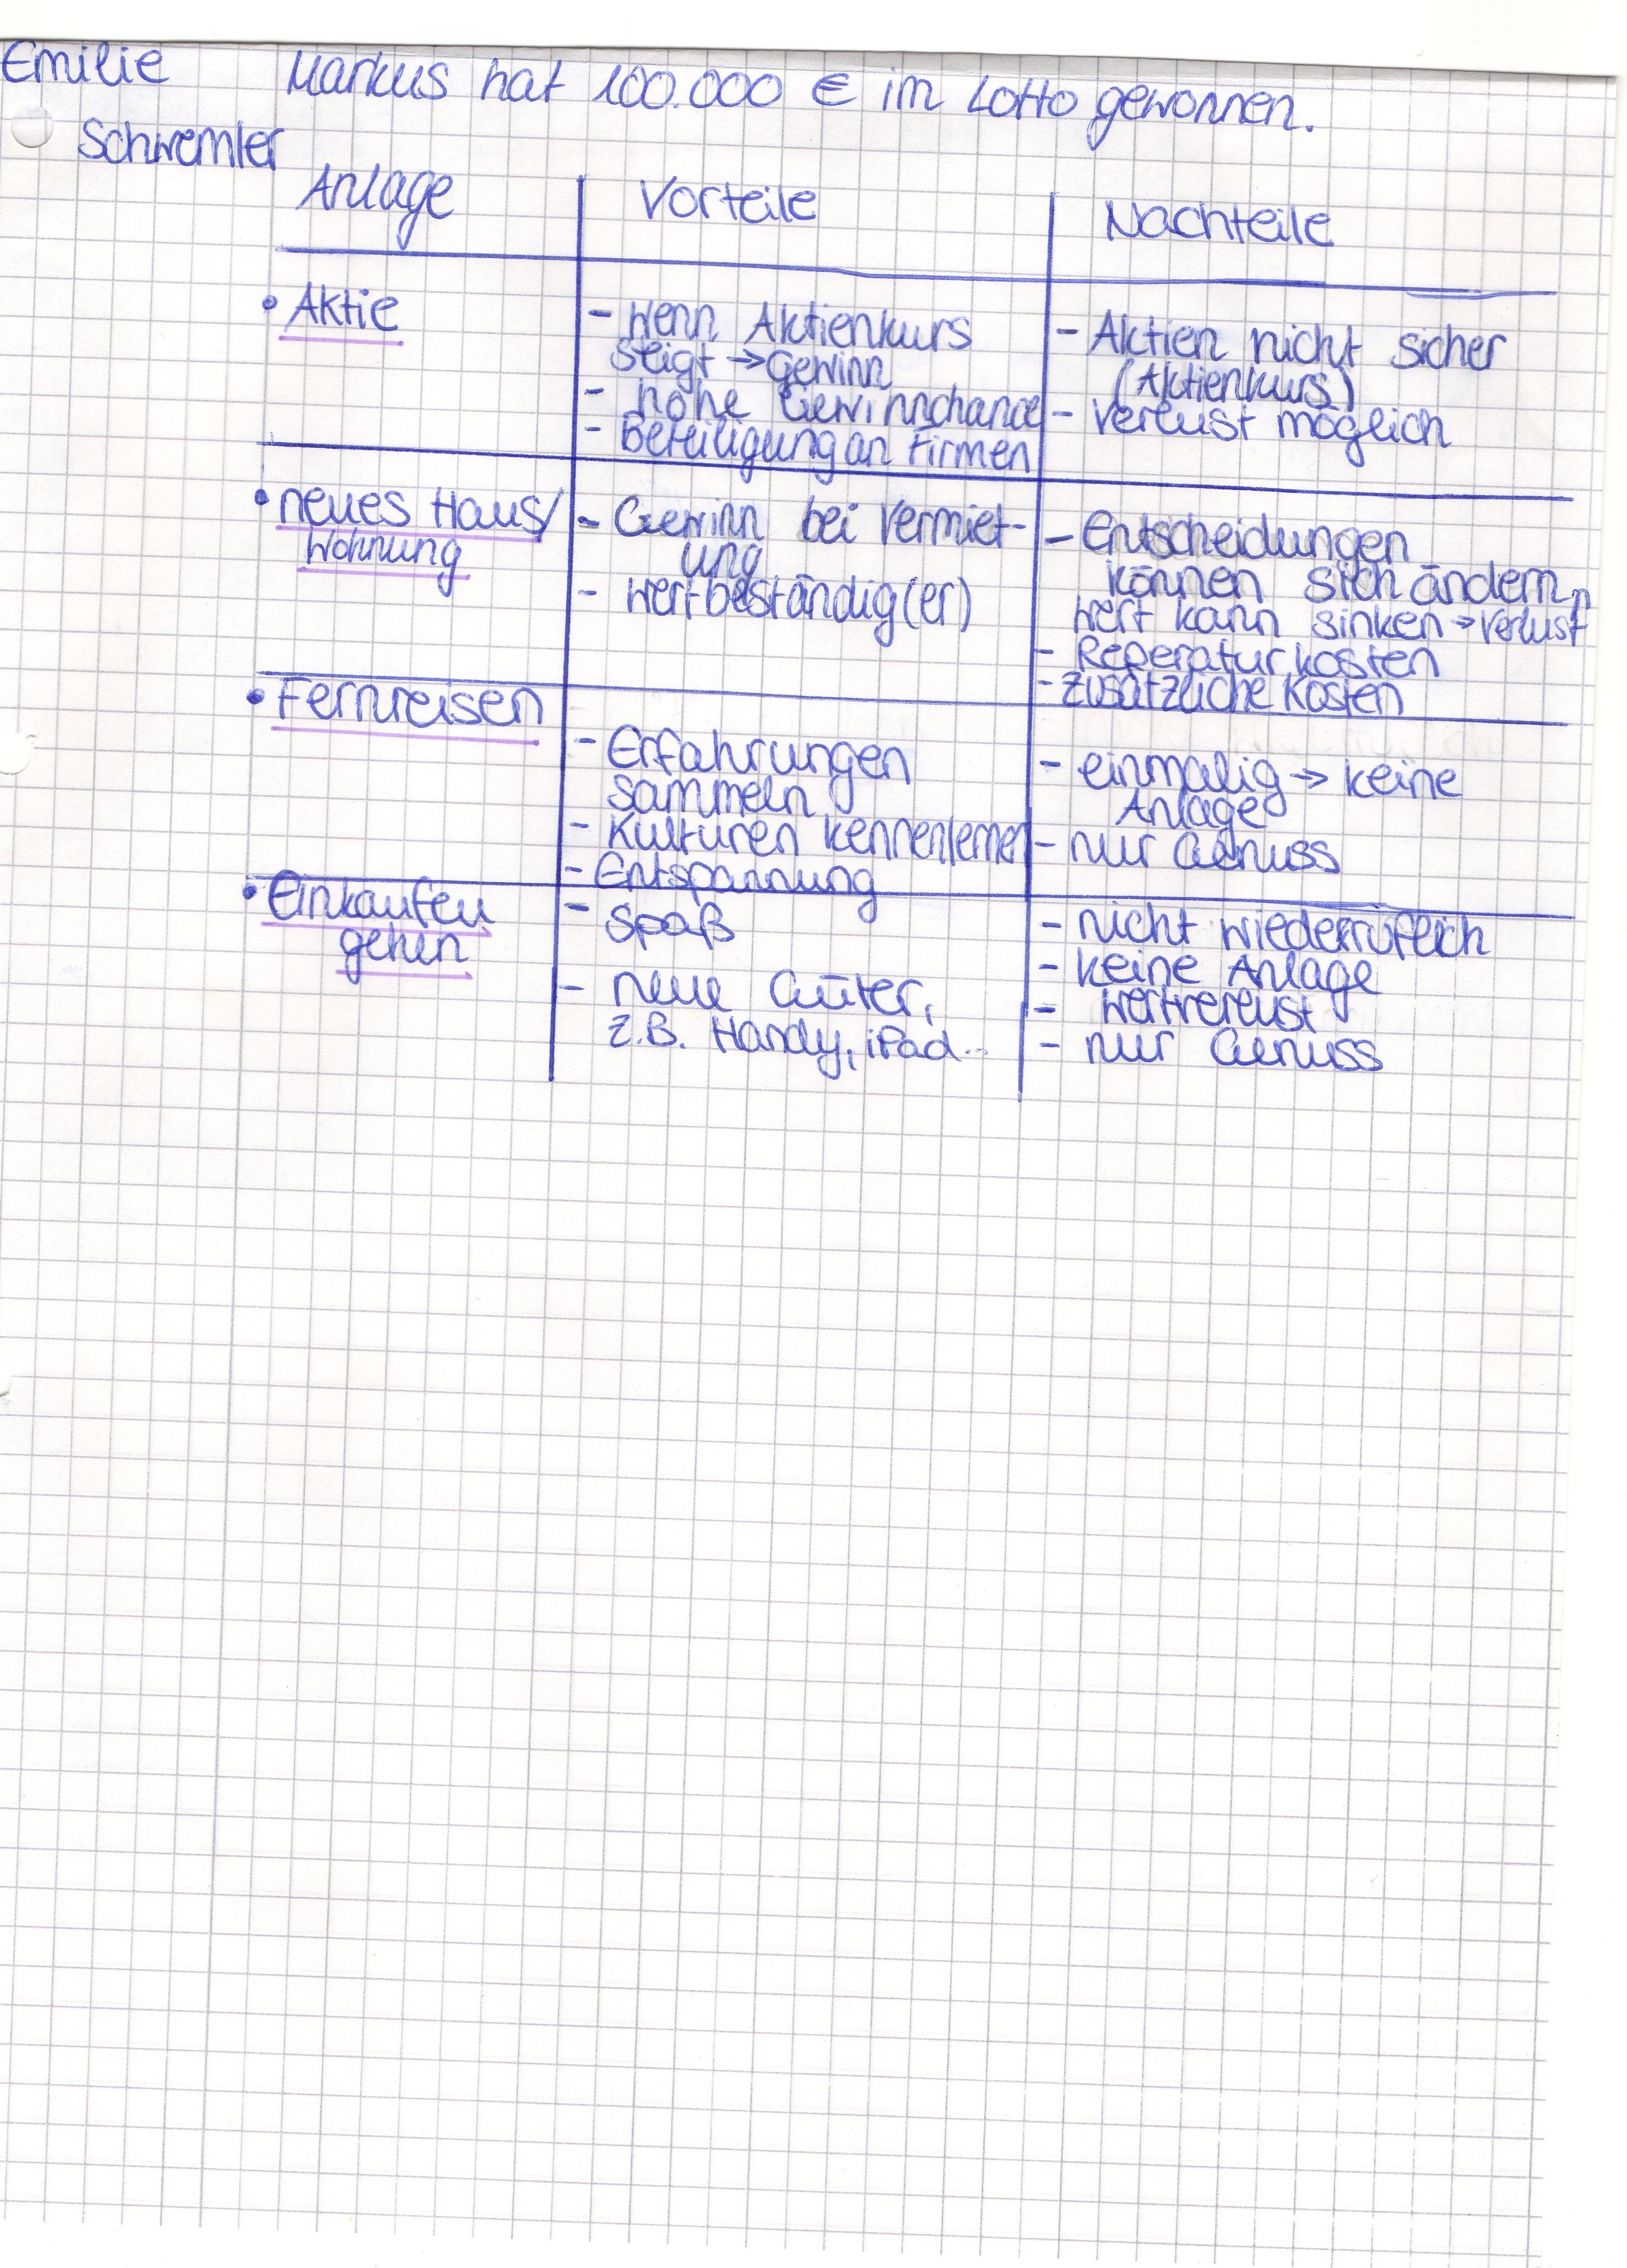 Emilie Markus hat 100.000 € im Lotto gewonnen.
Schwemler
Anlage Vorteile Nachteile
• Aktie
- wenn Aktienkurs
steigt → Gewinn
- hohe Gewinnchance
- Beteiligung an Firmen
- Aktien nicht sicher
(Aktienkurs)
- Verlust möglich
• neues Haus/
Wohnung
- Gewinn bei Vermiet-
ung
- wertbeständig(er)
- Entscheidungen
können sich ändern,
Wert kann sinken → Verlust
- Reperaturkosten
- zusätzliche Kosten
• Fernreisen
- Erfahrungen
sammeln
- Kulturen kennenlernen
- Entspannung
- einmalig → keine
Anlage
- nur Genuss
• Einkaufen
gehen
- Spaß
- neue Güter,
z.B. Handy, iPad...
- nicht wiederruflich
- keine Anlage
- Wertverlust
- nur Genuss